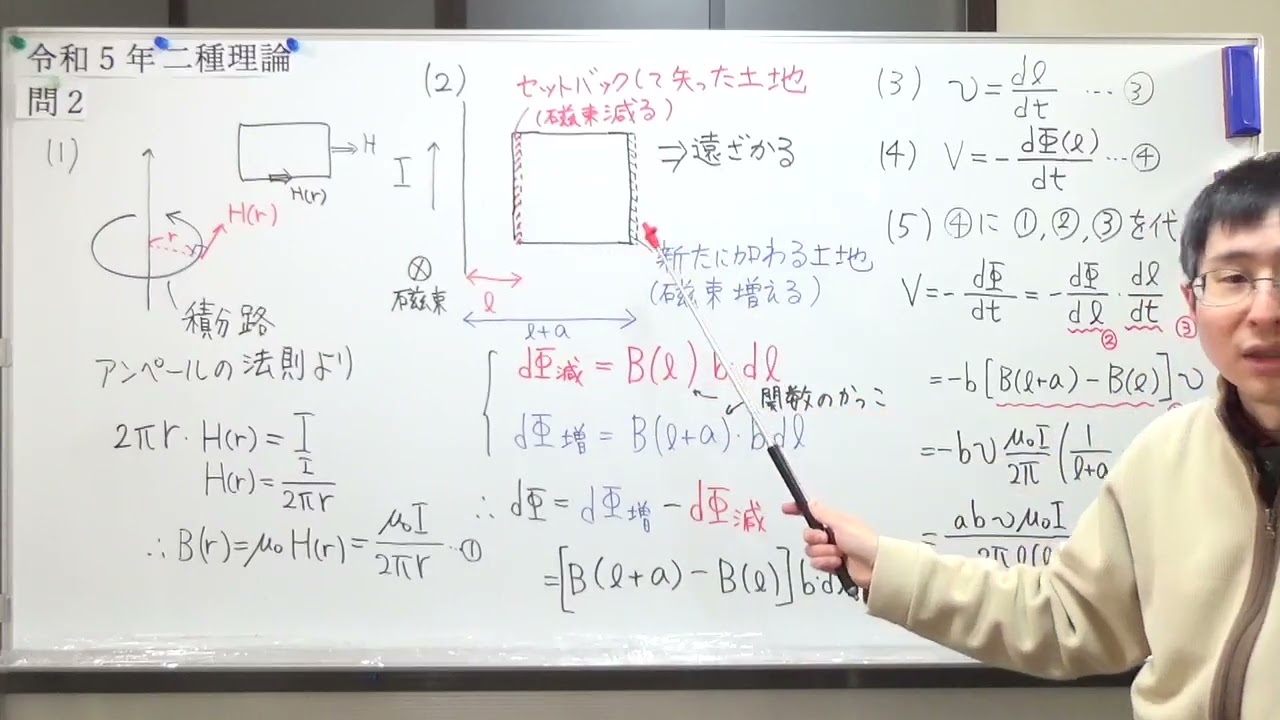 令和5年二種理論
問2
(1)
H
H(r)
H(r)
r
積分路
アンペールの法則より
2πr・H(r)=I
H(r)=I/2πr
∴B(r)=μ₀H(r)=μ₀I/2πr…①
(2)
セットバックして失った土地
(磁束減る)
⇒遠ざかる
I
⊗
磁束
新たに加わる土地
(磁束増える)
l
l+a
dΦ減=B(l)b・dl
関数のかっこ
dΦ増=B(l+a)・bdl
∴dΦ=dΦ増-dΦ減
=[B(l+a)-B(l)]b・d
(3) v=dl/dt …③
(4) V=-dΦ(l)/dt…④
(5) ④に①,②,③を代
V=-dΦ/dt=-dΦ/dl・dl/dt
② ③
=-b[B(l+a)-B(l)]v
=-bvμ₀I/2π(1/l+a
=abvμ₀I/2πl(l